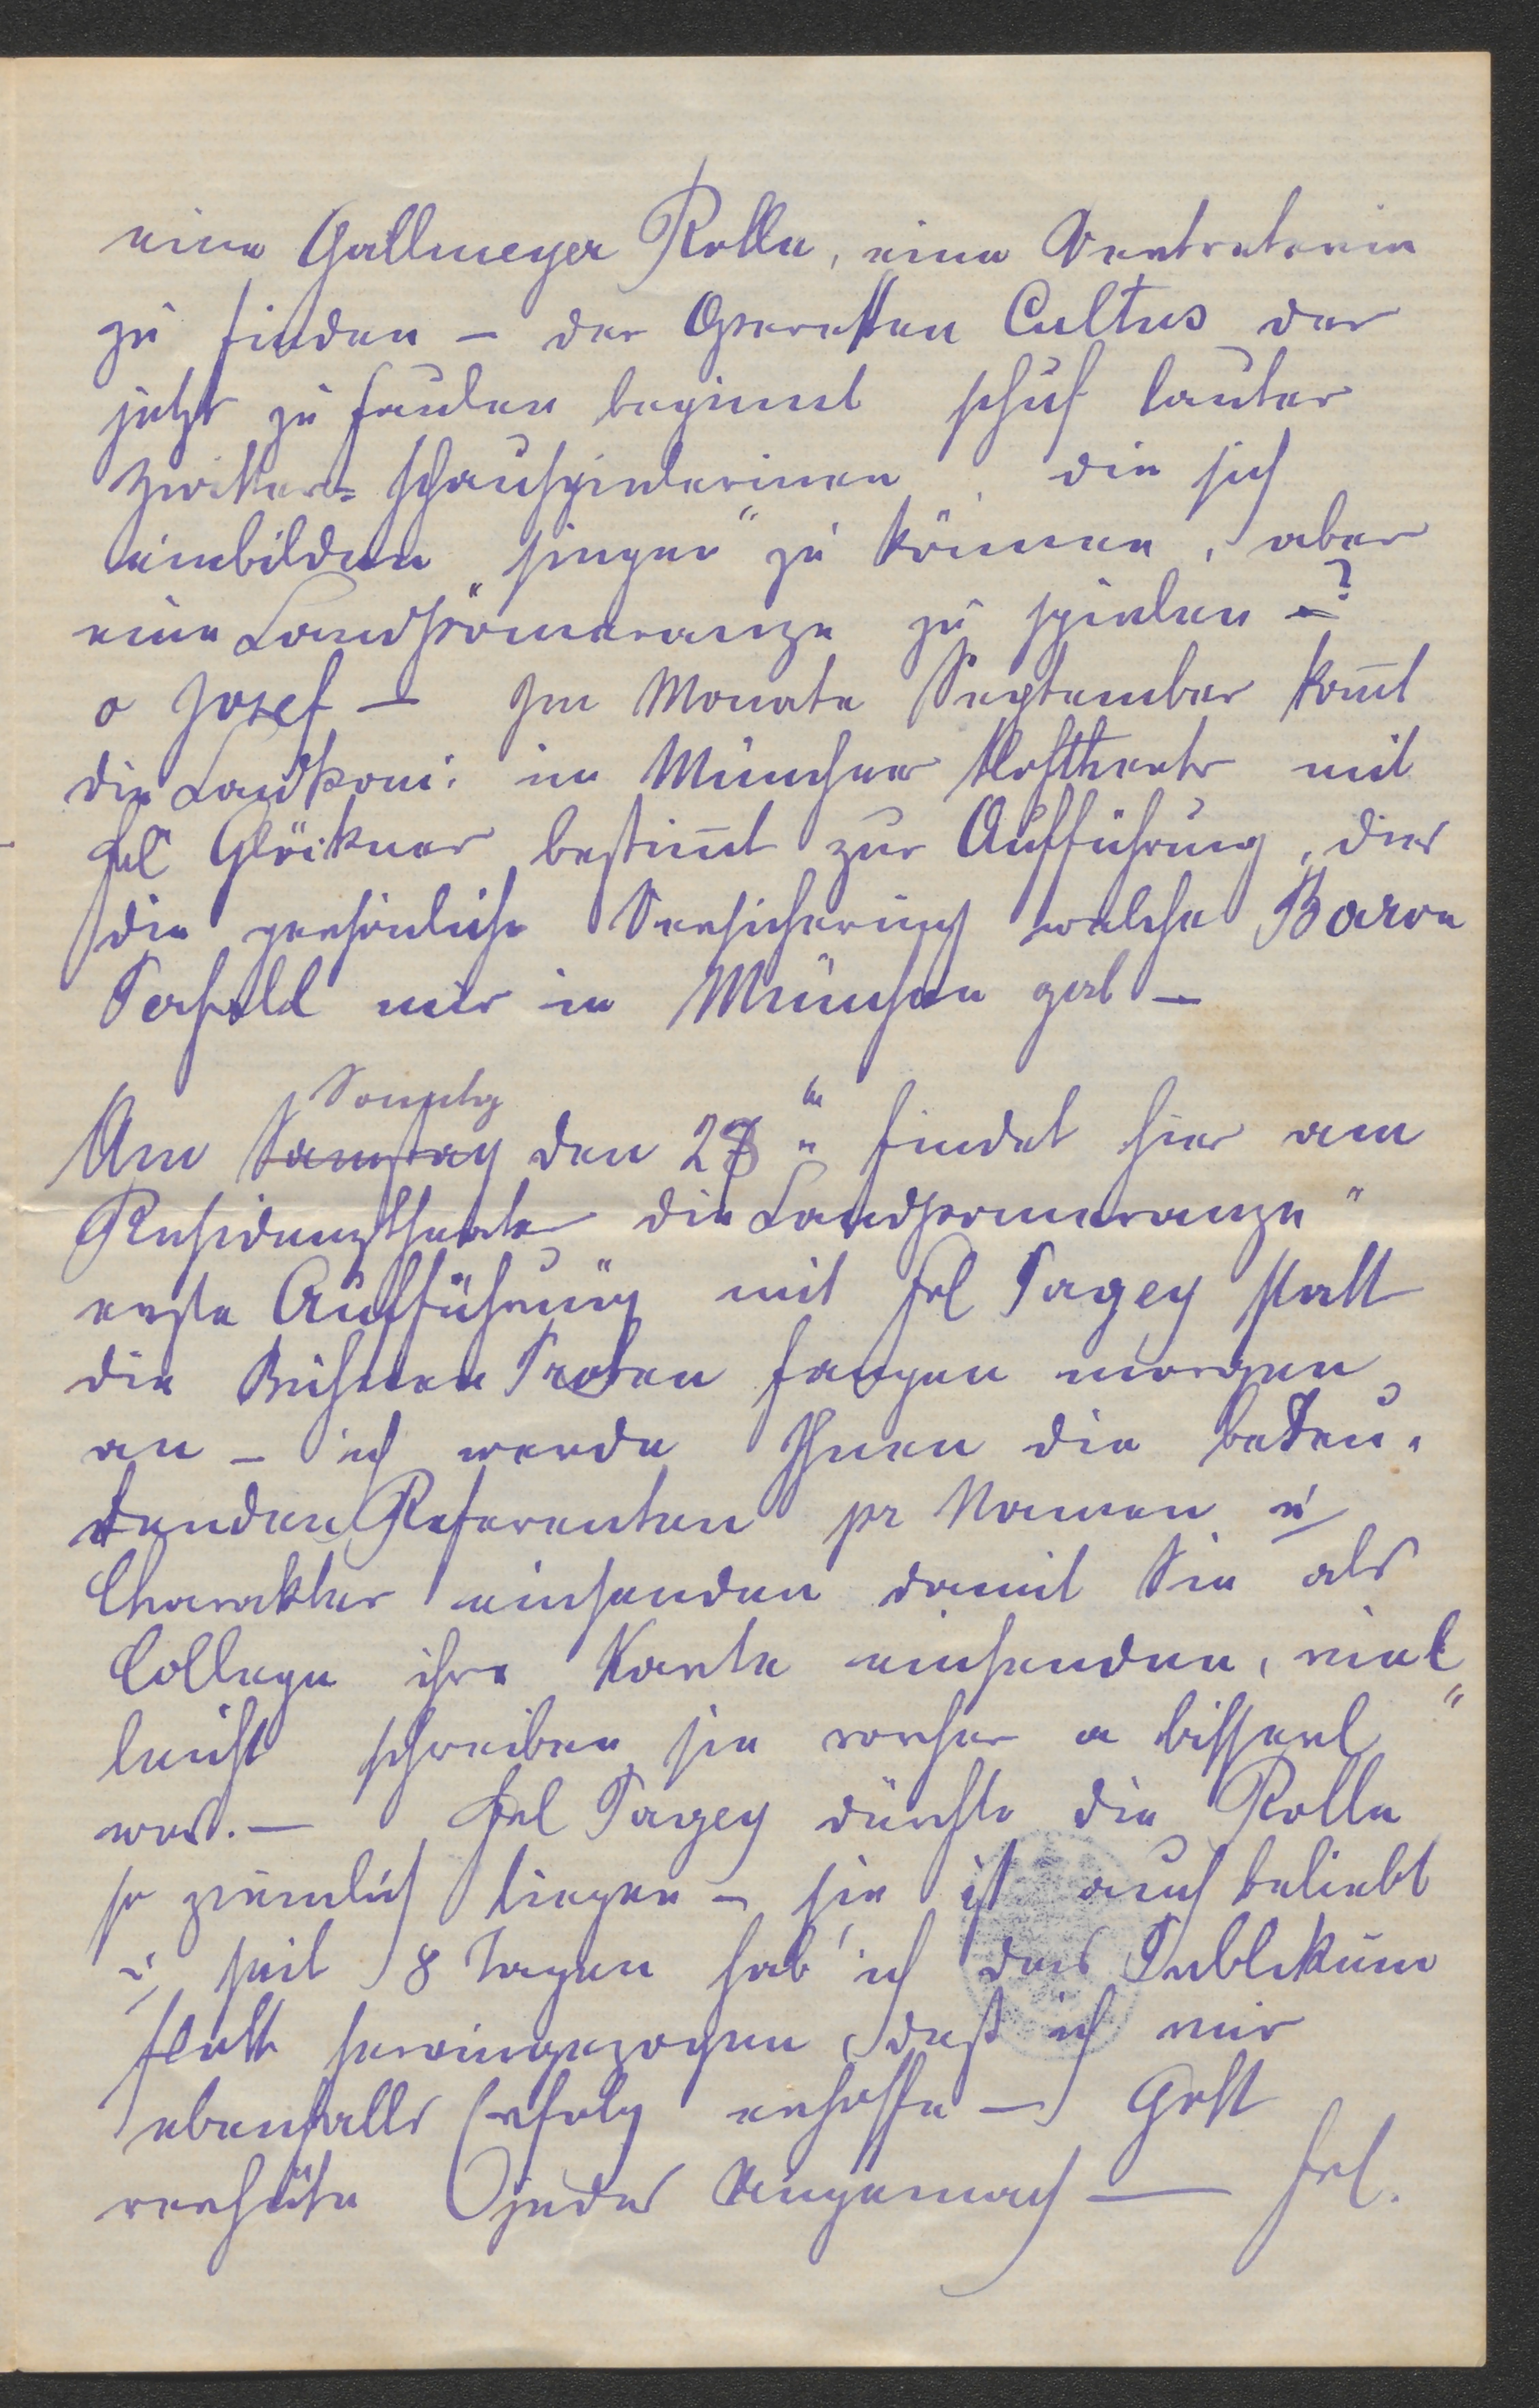 eine Gallmeyer Rolle, eine Vertreterin
zu finden – der Operetten Cultus der
jetzt zu faulen beginnt schuf lauter
Zwitter= schauspielerinen, die sich
einbilden „singen“ zu können, aber
eine Landpomeranze zu spielen –?
o Josef – Im Monate September kom̄t
die Landpom: im Münchner Hoftheater mit
Frl Glöckner bestim̄t zur Aufführung, dies
die persönliche Versicherung welche Baron
Perfall mir in München gab –
Sonntag
Am Samstag den 28ten findet hier am
Residenztheater die Landpomeranze“
erste Aufführung mit Frl Pagay statt
die Bühnen Proben fangen morgen
an – ich werde Ihnen die bedeu„
tenden Referenten pr Namen u
Charakter einsenden damit Sie als
College ihre Karte einsenden, viel„
leicht schreiben sie vorher a bisserl
was. – Frl Pagay dürfte die Rolle
so ziemlich liegen – sie ist auch beliebt
u seit 8 Tagen hab' ich das Publikum
flott hereingezogen, daß ich mir
ebenfalls Erfolg erhoffe – Gott
verhüte jedes Ungemach — Frl.